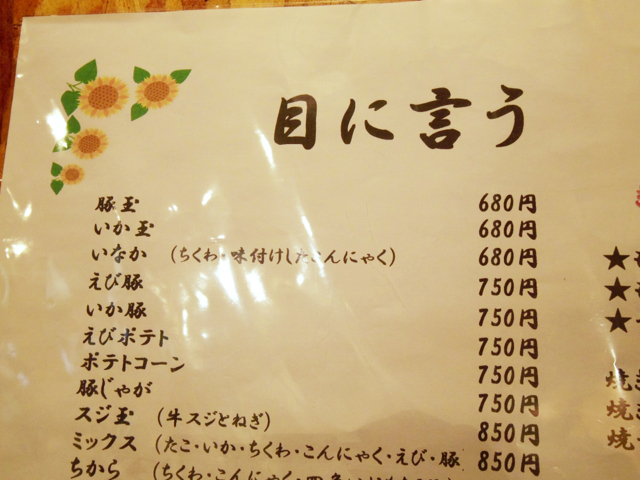 目に言う
豚玉 680円
いか玉 680円
いなか (ちくわ・味付けしたこんにゃく) 680円
えび豚 750円
いか豚 750円
えびポテト 750円
ポテトコーン 750円
豚じゃが 750円
スジ玉 (牛スジとねぎ) 850円
ミックス (たこ・いか・ちくわ・こんにゃく・えび・豚 850円
ちから (ちくわ・こんにゃく・
★
★
★
焼き
焼き
焼